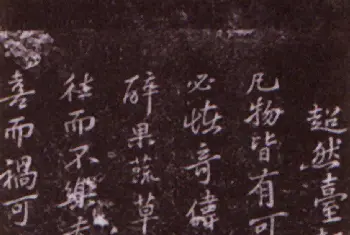 超然臺
凡物皆有可
必怪奇偉
醉果蔬草
往而不樂
喜而禍可